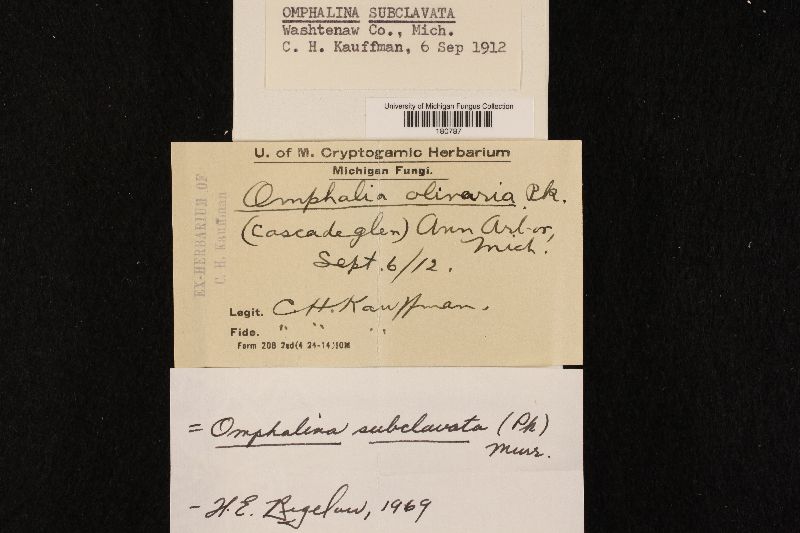 OMPHALINA SUBCLAVATA
Washtenaw Co., Mich.
C. H. Kauffman, 6 Sep 1912
University of Michigan Fungus Collection
180787
U. of M. Cryptogamic Herbarium
Michigan Fungi.
Omphalia olivaria Pk.
(Cascade glen) Ann Arbor,
Mich.
Sept. 6/12.
Legit. C.H. Kauffman.
Fide. " " "
Form 208 2ed(4 24-14)10M
EX-HERBARIUM OF
C. H. Kauffman
= Omphalina subclavata (Pk)
Murr.
- H.E. Bigelow, 1969